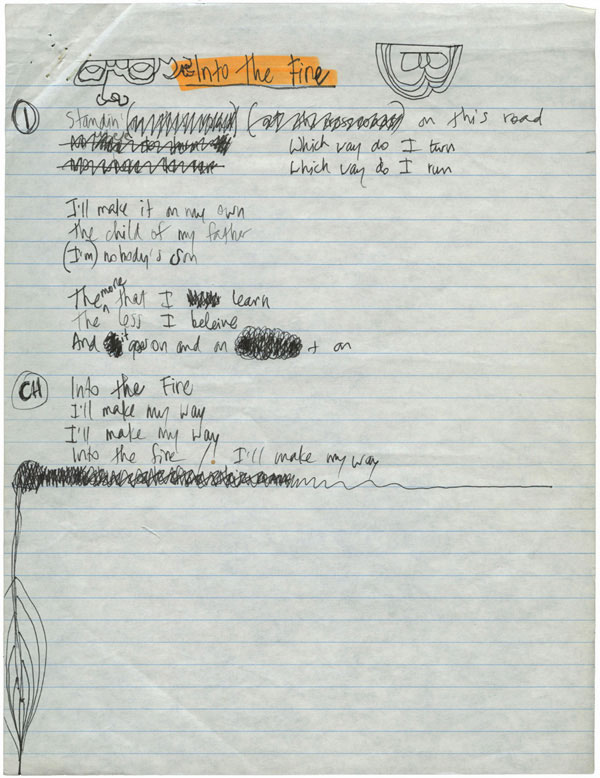 Into the Fire
1 Standin' on this road
Which way do I turn
Which way do I run
I'll make it on my own
the child of my father
(I'm) nobody's son
The more that I learn
The less I beleive
And it goes on and on + on
CH Into the Fire
I'll make my way
I'll make my way
Into the fire // I'll make my way